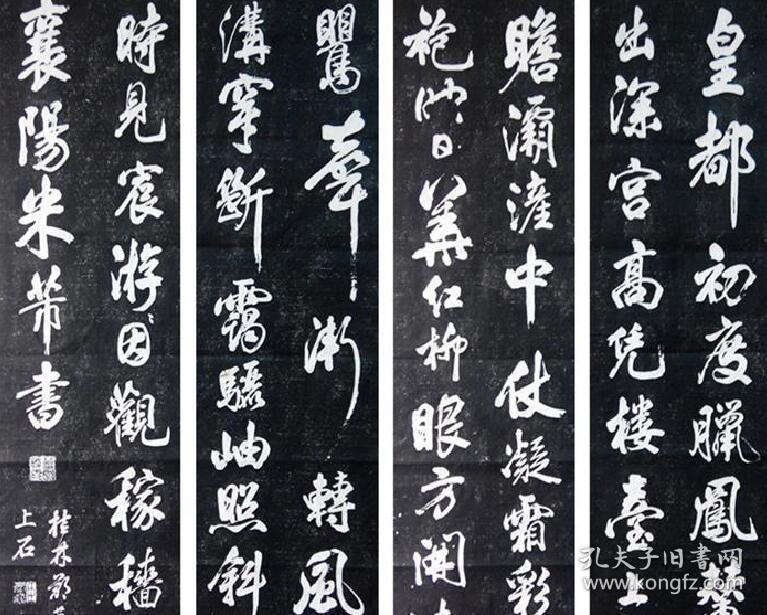 皇都初度臘鳳輦
出深宮高凭楼臺上
瞻灞滻中仗凝霜彩
袍映日華红柳眼方開
鸎聲漸轉風
溝穿斷靄驪岫照斜
時見宸游因觀稼穡
襄陽米芾書
桂林鄧
上石
孔夫子旧書网
www.kongfz.com